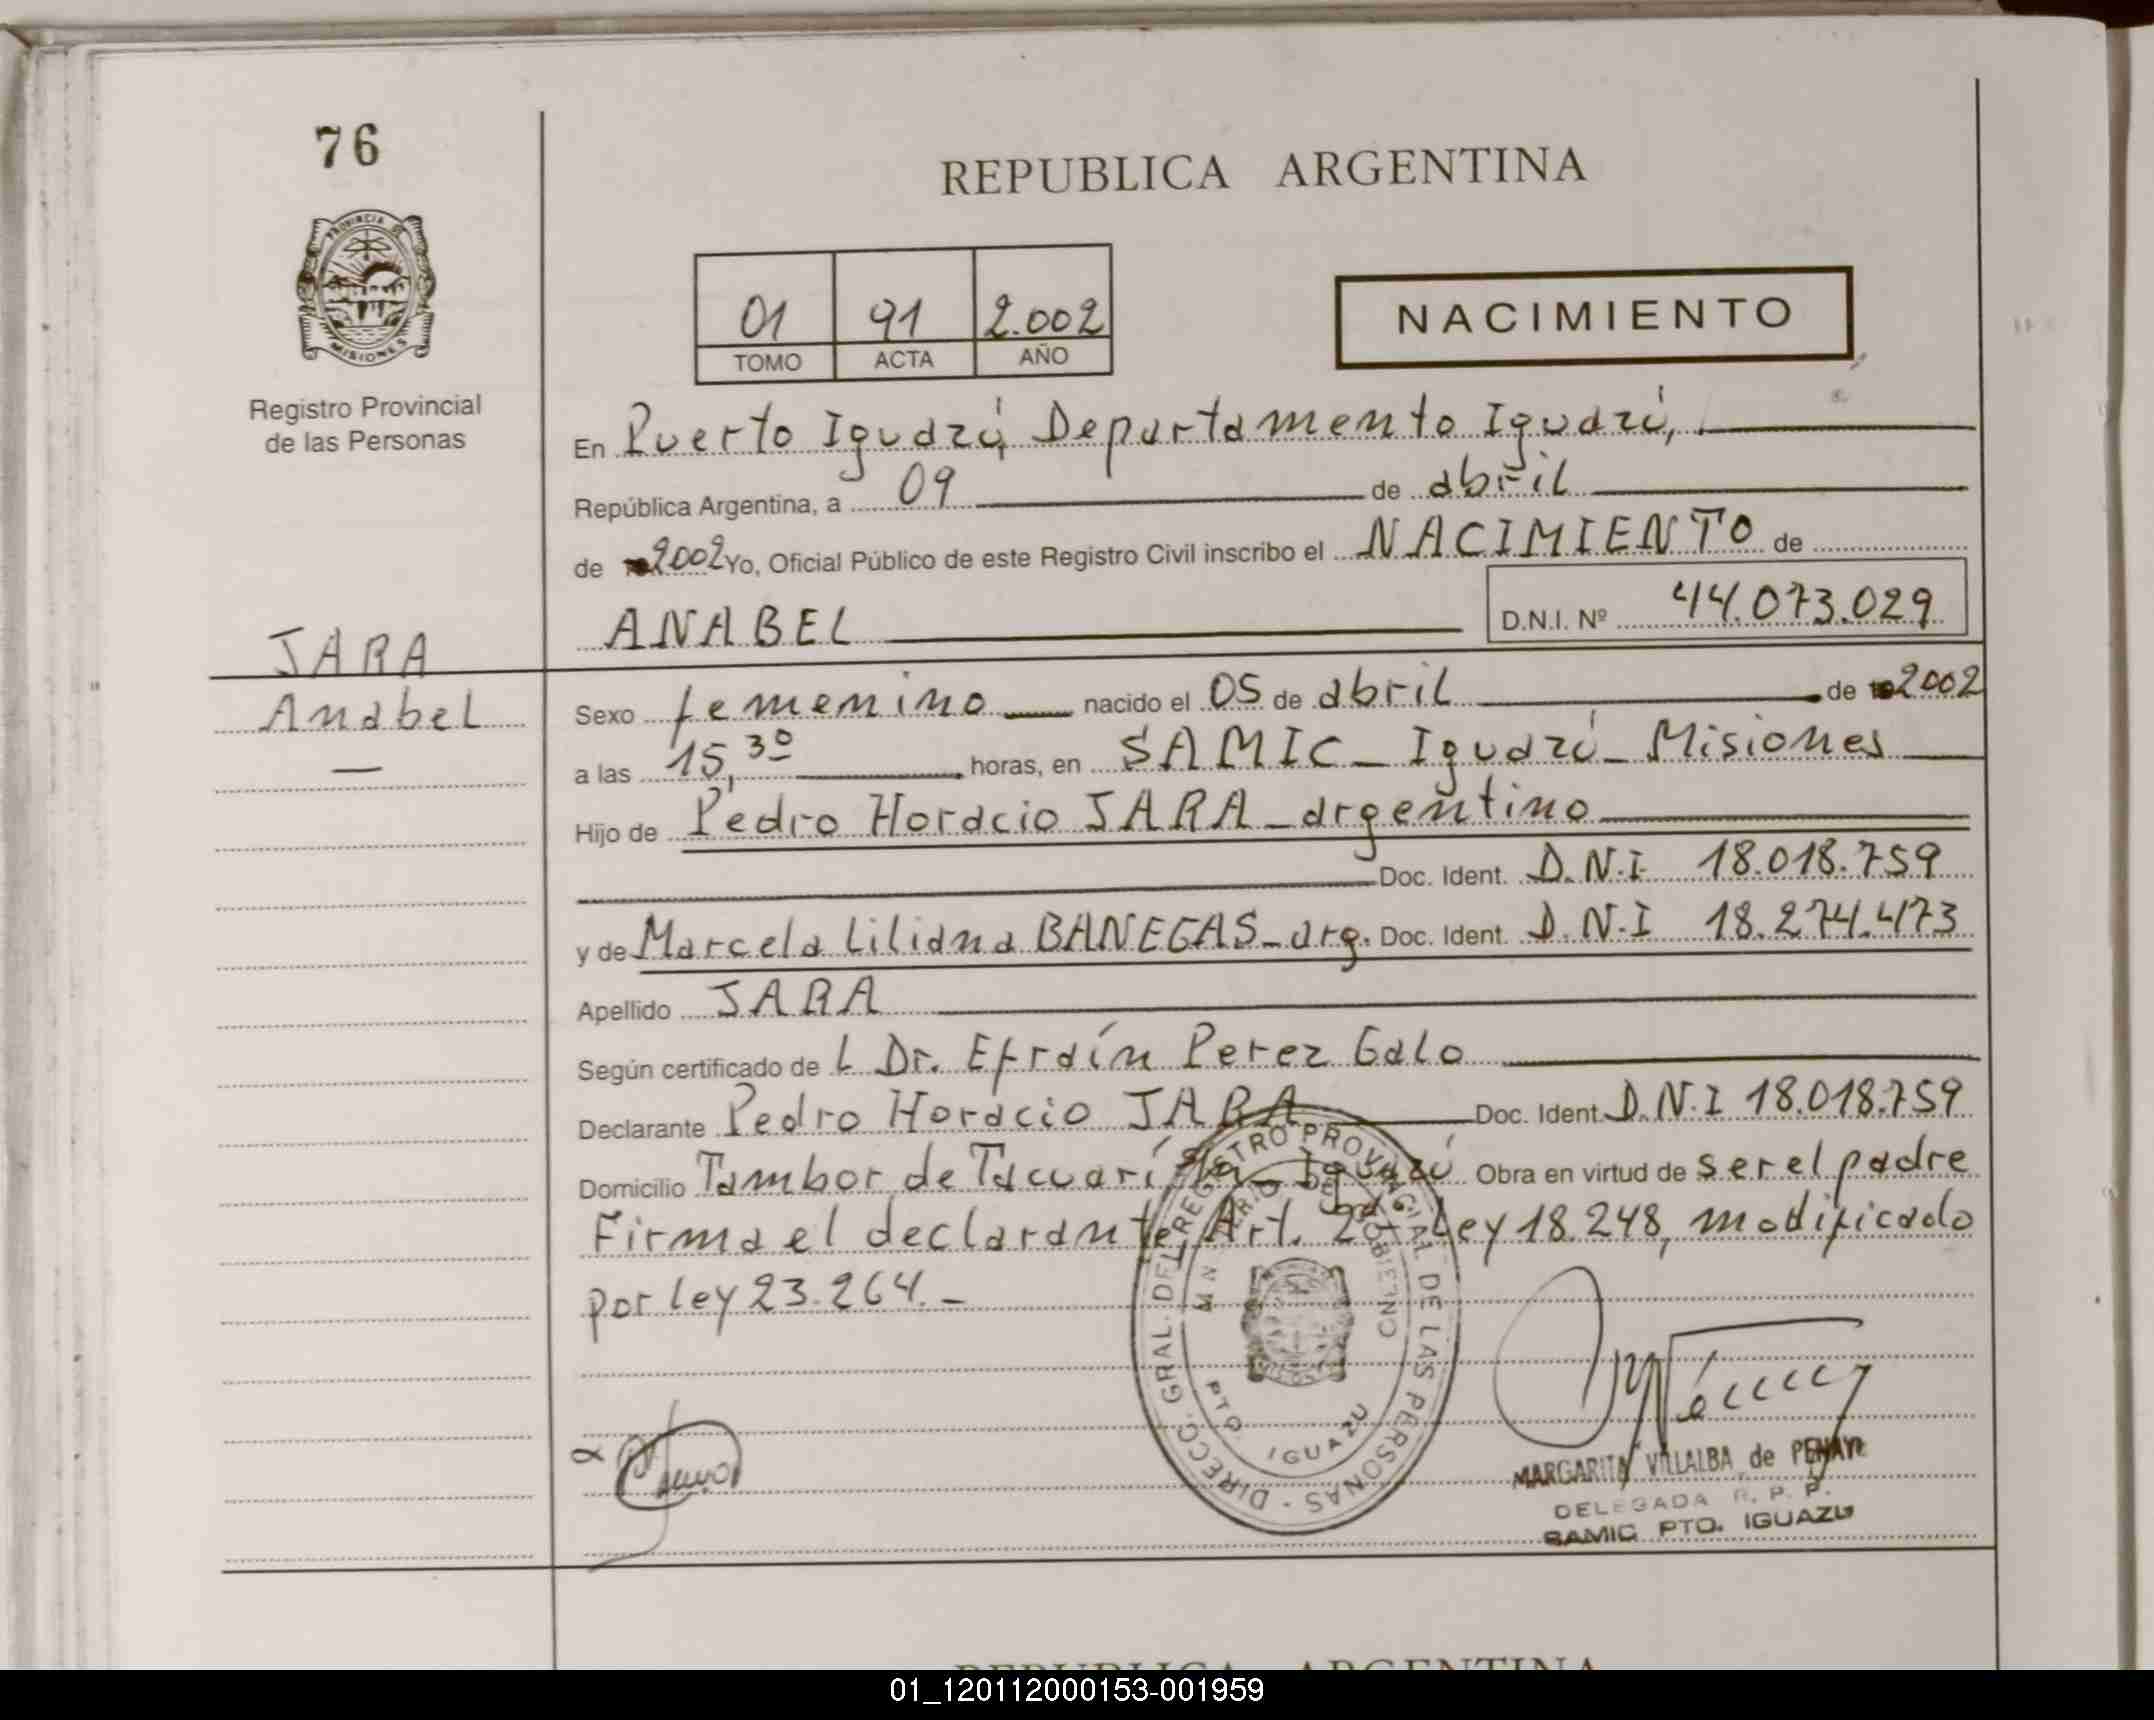 76
PROVINCIA DE
MISIONES
Registro Provincial
de las Personas
JARA
Anabel
REPUBLICA ARGENTINA
01 91 2.002
TOMO ACTA AÑO
NACIMIENTO
En Puerto Iguazú, Departamento Iguazú,
República Argentina, a 09 de abril
de 2002 Yo, Oficial Público de este Registro Civil inscribo el NACIMIENTO de
ANABEL D.N.I. Nº 44.073.029
Sexo femenino nacido el 05 de abril de 2002
a las 15,30 horas, en SAMIC_ Iguazú_ Misiones
Hijo de Pedro Horacio JARA_argentino
Doc. Ident. D.N.I 18.018.759
y de Marcela Liliana BANEGAS_arg. Doc. Ident. D.N.I 18.274.473
Apellido JARA
Según certificado de L Dr. Efraín Perez Galo
Declarante Pedro Horacio JARA Doc. Ident. D.N.I 18.018.759
Domicilio Tambor de Tacuarí Iguazú Obra en virtud de ser el padre
Firma el declarante, Art. Ley 18.248, modificado
por ley 23.264._
DIRECC. GRAL. DEL REGISTRO PROVINCIAL DE LAS PERSONAS -
MINISTERIO DE GOBIERNO
PTO. IGUAZU
MARGARITA VILLALBA de
DELEGADA R. P. P.
SAMIC PTO. IGUAZU
REPUBLICA ARGENTINA
01_120112000153-001959